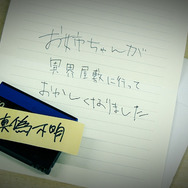 お姉ちゃんが
冥界屋敷に行って
おかしくなりました
真偽不明